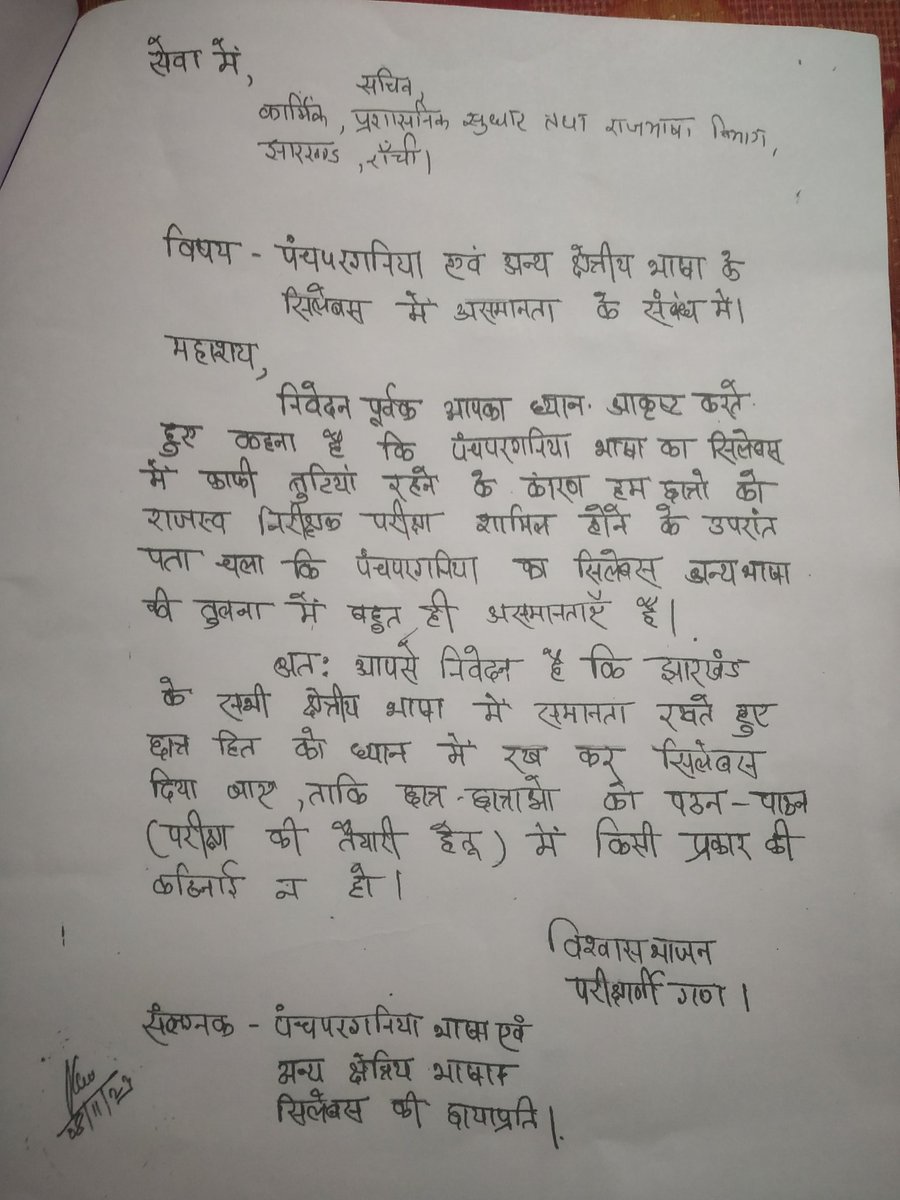 सेवा में,
सचिव,
कार्मिक, प्रशासनिक सुधार तथा राजभाषा विभाग,
झारखण्ड, राँची।
विषय - पंचपरगनिया एवं अन्य क्षेत्रीय भाषा के
सिलेबस में असमानता के संबंध में।
महाशय,
निवेदन पूर्वक आपका ध्यान आकृष्ट करते
हुए कहना है कि पंचपरगनिया भाषा का सिलेबस
में काफी त्रुटियां रहने के कारण हम छात्रो को
राजस्व निरीक्षक परीक्षा शामिल होने के उपरांत
पता चला कि पंचपरगनिया का सिलेबस अन्य भाषा
की तुलना में बहुत ही असमानताएँ है।
अतः आपसे निवेदन है कि झारखंड
के सभी क्षेत्रीय भाषा में समानता रखते हुए
छात्र हित को ध्यान में रख कर सिलेबस
दिया जाए, ताकि छात्र-छात्राओ को पठन-पाठन
(परीक्षा की तैयारी हेतू) में किसी प्रकार की
कठिनाई न हो।
विश्वास भाजन
परीक्षार्थी गण।
संलग्नक - पंचपरगनिया भाषा एवं
अन्य क्षेत्रिय भाषा
सिलेबस की छायाप्रति।